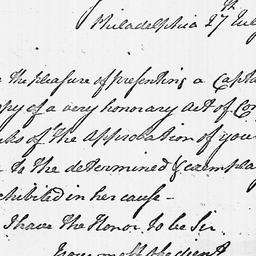 Philadelphia 27th July
the pleasure of presenting a Capta
opy of a very honorary Act of Con
of the Approbation of your
to the determined & exempla
exhibited in her cause -
I have the Honor to be Sir
your most obedient